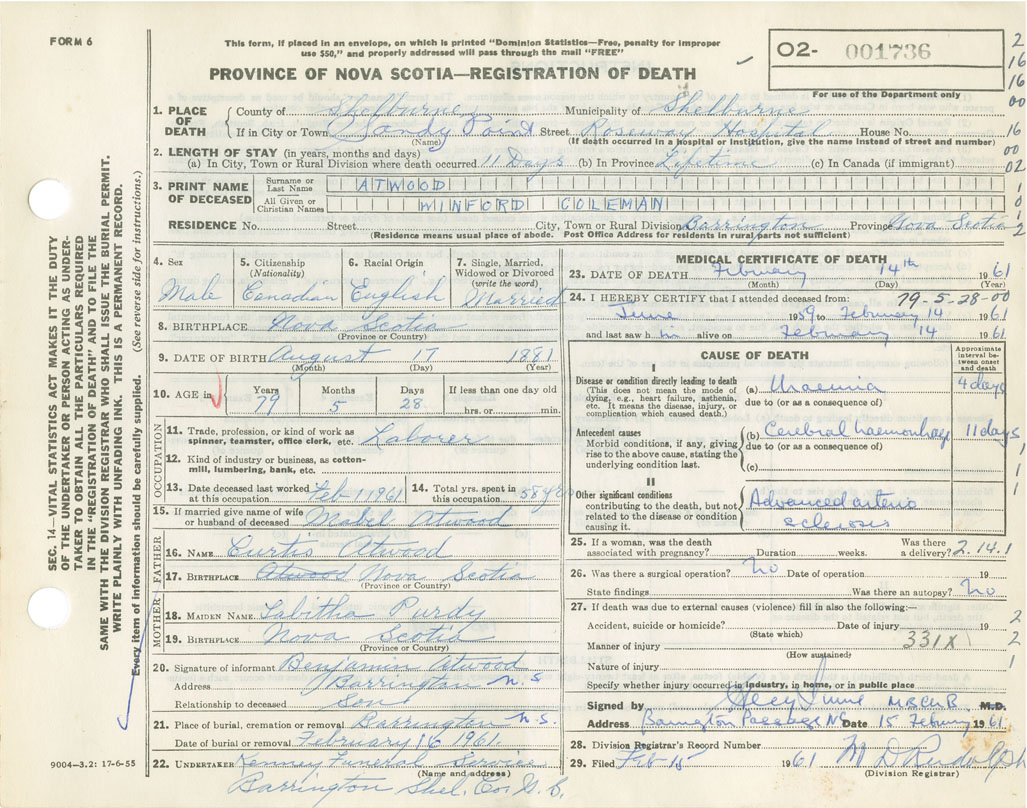 FORM 6
This form, if placed in an envelope, on which is printed "Dominion Statistics—Free, penalty for improper
use $50," and properly addressed will pass through the mail "FREE"
PROVINCE OF NOVA SCOTIA—REGISTRATION OF DEATH
O2- 001736
For use of the Department only
2
16
16
00
16
00
02
1
0
1
2
SEC. 14—VITAL STATISTICS ACT MAKES IT THE DUTY
OF THE UNDERTAKER OR PERSON ACTING AS UNDER-
TAKER TO OBTAIN ALL THE PARTICULARS REQUIRED
IN THE "REGISTRATION OF DEATH" AND TO FILE THE
SAME WITH THE DIVISION REGISTRAR WHO SHALL ISSUE THE BURIAL PERMIT.
WRITE PLAINLY WITH UNFADING INK. THIS IS A PERMANENT RECORD.
Every item of information should be carefully supplied. (See reverse side for instructions.)
1. PLACE OF DEATH
County of Shelburne Municipality of Shelburne
If in City or Town Sandy Point Street Roseway Hospital House No.
(Name) (If death occurred in a hospital or institution, give the name instead of street and number)
2. LENGTH OF STAY (in years, months and days)
(a) In City, Town or Rural Division where death occurred 11 Days (b) In Province Lifetime (c) In Canada (if immigrant)
3. PRINT NAME OF DECEASED
Surname or Last Name ATWOOD
All Given or Christian Names WINFORD COLEMAN
RESIDENCE No. Street City, Town or Rural Division Barrington Province Nova Scotia
(Residence means usual place of abode. Post Office Address for residents in rural parts not sufficient)
4. Sex Male
5. Citizenship (Nationality) Canadian
6. Racial Origin English
7. Single, Married, Widowed or Divorced (write the word) Married
8. BIRTHPLACE Nova Scotia
(Province or Country)
9. DATE OF BIRTH August 17 1881
(Month) (Day) (Year)
10. AGE in Years 79 Months 5 Days 28 If less than one day old
hrs. or min.
OCCUPATION
11. Trade, profession, or kind of work as
spinner, teamster, office clerk, etc. Laborer
12. Kind of industry or business, as cotton-
mill, lumbering, bank, etc.
13. Date deceased last worked at this occupation Feb 1 1961
14. Total yrs. spent in this occupation 58 yrs
15. If married give name of wife
or husband of deceased Mabel Atwood
FATHER
16. NAME Curtis Atwood
17. BIRTHPLACE Atwood Nova Scotia
(Province or Country)
MOTHER
18. MAIDEN NAME Tabitha Purdy
19. BIRTHPLACE Nova Scotia
(Province or Country)
20. Signature of informant Benjamin Atwood
Address Barrington N.S
Relationship to deceased Son
21. Place of burial, cremation or removal Barrington N.S.
Date of burial or removal February 16 1961.
22. UNDERTAKER Kenney Funeral Service
(Name and address)
Barrington Shel. Co. N.S.
9004—3.2: 17-6-55
MEDICAL CERTIFICATE OF DEATH
23. DATE OF DEATH February 14th 1961
(Month) (Day) (Year)
24. I HEREBY CERTIFY that I attended deceased from: 79-5-28-00
June 1959 to February 14 1961
and last saw him alive on February 14 1961
CAUSE OF DEATH
Approximate interval between onset and death
I
Disease or condition directly leading to death
(This does not mean the mode of
dying, e.g., heart failure, asthenia,
etc. It means the disease, injury, or
complication which caused death.)
(a) Uraemia 4 days
due to (or as a consequence of)
Antecedent causes
Morbid conditions, if any, giving
rise to the above cause, stating the
underlying condition last.
(b) Cerebral haemorrhage 11 days
due to (or as a consequence of)
(c)
1
1
1
II
Other significant conditions
contributing to the death, but not
related to the disease or condition
causing it.
Advanced arterio
sclerosis
25. If a woman, was the death
associated with pregnancy? Duration weeks. Was there a delivery? 2.14.1
26. Was there a surgical operation? No Date of operation 19
State findings Was there an autopsy? No
27. If death was due to external causes (violence) fill in also the following:—
Accident, suicide or homicide? Date of injury 19
(State which)
Manner of injury 331X
(How sustained)
Nature of injury
2
2
1
Specify whether injury occurred in industry, in home, or in public place
Signed by MBChB M.D.
Address Barrington Passage NS Date 15 February 1961
28. Division Registrar's Record Number
29. Filed Feb 15 1961 M D Rudolph
(Division Registrar)